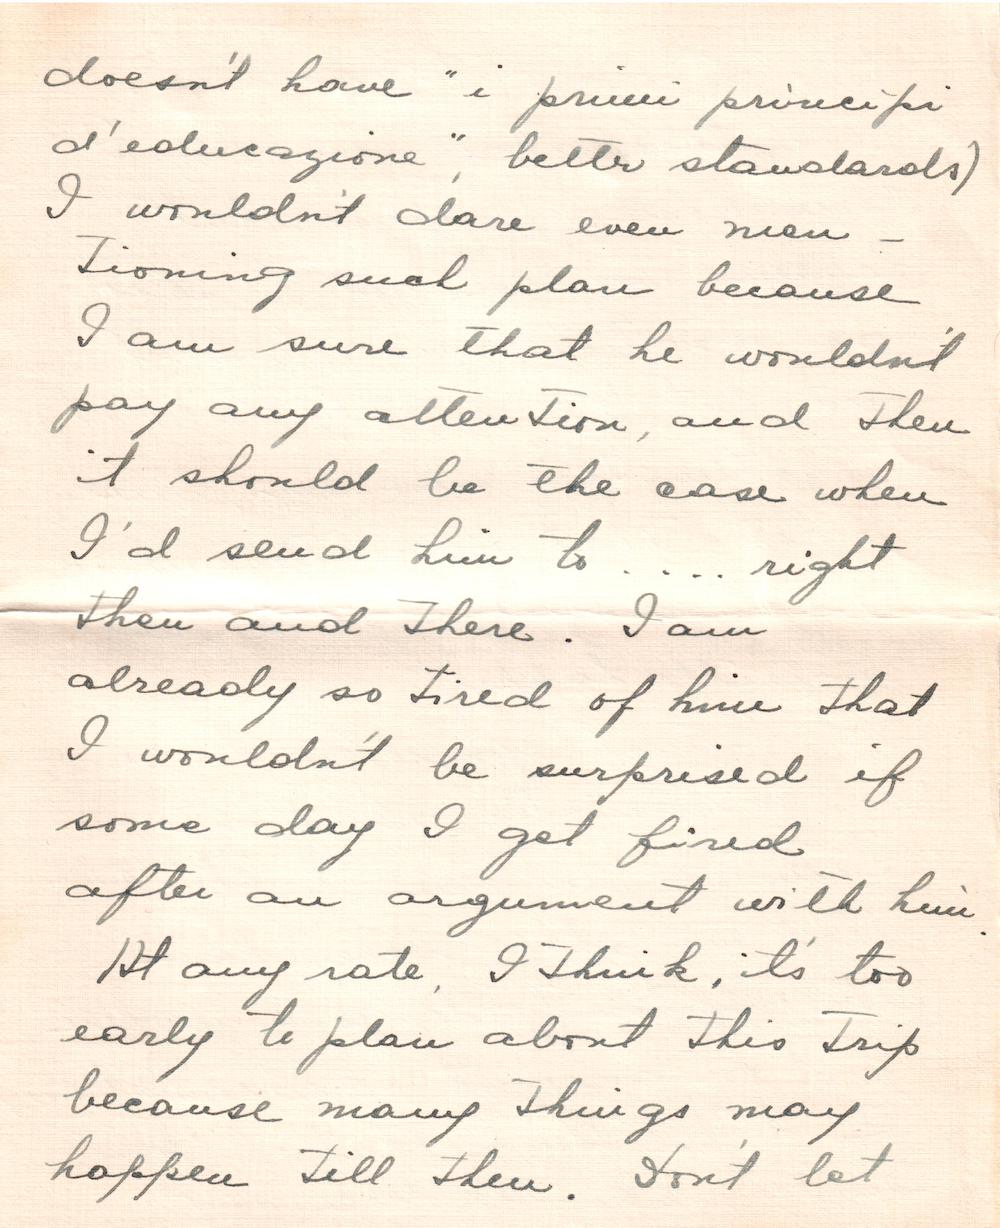 doesn't have "i primi principi
d'educazione", better standards)
I wouldn't dare even men -
tioning such plan because
I am sure that he wouldn't
pay any attention, and then
it should be the case when
I'd send him to ..... right
then and there. I am
already so tired of him that
I wouldn't be surprised if
some day I get fired
after an argument with him.
At any rate, I think, it's too
early to plan about this trip
because many things may
happen till then. Don't let